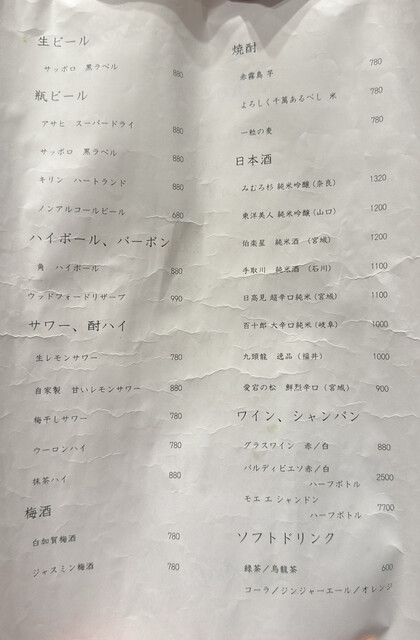 生ビール
サッポロ 黒ラベル 880
瓶ビール
アサヒ スーパードライ 880
サッポロ 黒ラベル 880
キリン ハートランド 880
ノンアルコールビール 680
ハイボール、バーボン
角 ハイボール 880
ウッドフォードリザーブ 990
サワー、酎ハイ
生レモンサワー 780
自家製 甘いレモンサワー 880
梅干しサワー 780
ウーロンハイ 780
抹茶ハイ 880
梅酒
白加賀梅酒 780
ジャスミン梅酒 780
焼酎
赤霧島 芋 780
よろしく千萬あるべし 米 780
一粒の麦 780
日本酒
みむろ杉 純米吟醸(奈良) 1320
東洋美人 純米吟醸(山口) 1200
伯楽星 純米酒 (宮城) 1200
手取川 純米酒 (石川) 1100
日高見 超辛口純米(宮城) 1100
百十郎 大辛口純米(岐阜) 1000
九頭龍 逸品 (福井) 1000
愛宕の松 鮮烈辛口(宮城) 900
ワイン、シャンパン
グラスワイン 赤/白 880
バルディビエソ赤/白
ハーフボトル 2500
モエ エ シャンドン
ハーフボトル 7700
ソフトドリンク
緑茶/烏龍茶 600
コーラ/ジンジャーエール/オレンジ